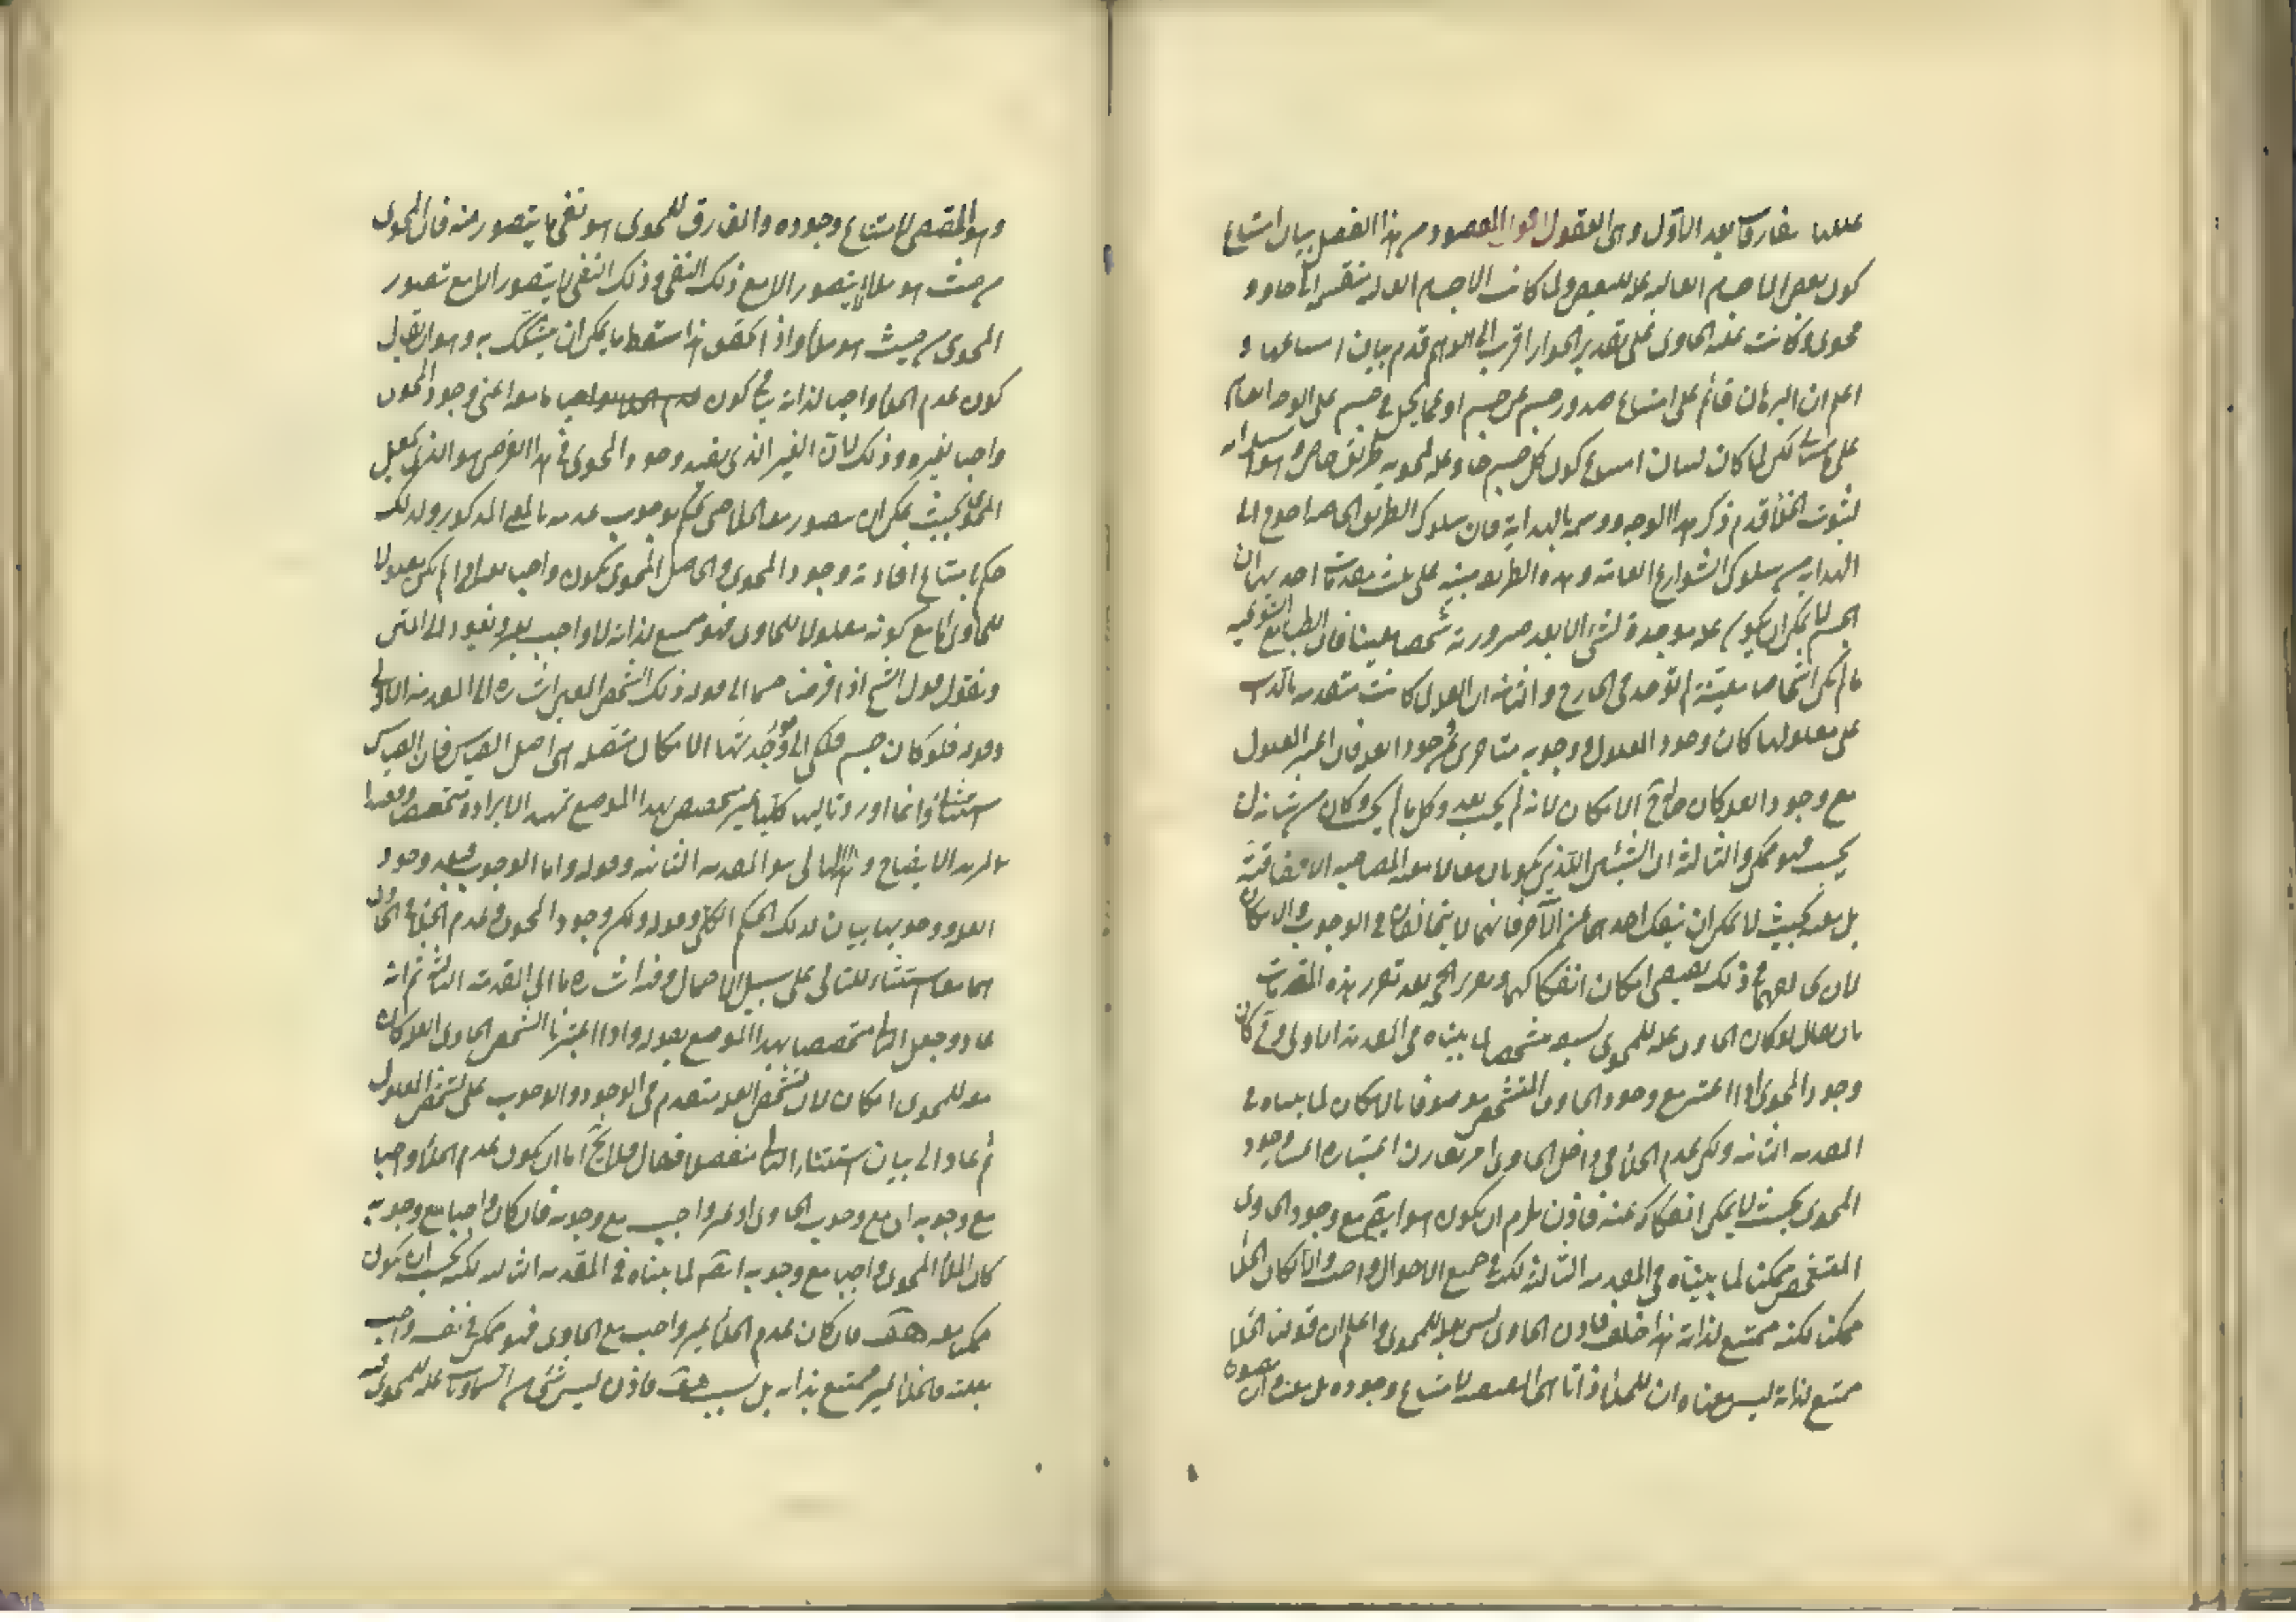 عللها مفارقات بعد الأول وهي العقول أقول المقصود من هذا الفصل بيان امتناع
كون بعض الأجسام العالية علة للبعض ولما كانت الأجسام العالية منقسمة إلى حاو و
محوى وكانت علية الحاوى على تقدير الجواز أقرب إلى الوهم قدم بيان امتناعها و
اعلم ان البرهان قائم على امتناع صدور جسم عن جسم او عما يحل في جسم على الوجه العام
على ما سيأتي لكن لما كان لبيان امتناع كون كل جسم حاو علة لمحويه طريق خاص وهو استلزامه
لثبوت الخلأ قدم ذكر هذا الوجه ووسمه بالهداية فان سلوك الطريق الخاصة احوج الى
الهداية من سلوك الشوارع العامة وهذه الطريقة مبنية على ثلث مقدمات احديها ان
الجسم لا يمكن ان يكون علة موجدة لشئ الا بعد صيرورته شخصا معينا فان الطبايع النوعية
ما لم يكن اشخاصا معينة لم توجد في الخارج والثانية ان العلة لما كانت متقدمة بالذات
على معلولها كان وجود المعلول ووجوبه متاخرين عن وجود العلة فان اعتبر المعلول
مع وجود العلة كان حاله ح الامكان لانه لم يجب بعد وكل ما لم يجب وكان من شانه ان
يجب فهو ممكن والثالثة ان الشيئين اللذين يكونان معا لا معية المصاحبة الاتفاقية
بل معية بحيث لا يمكن ان ينفك احدهما عن الآخر فانهما لا يتخالفان في الوجوب والامكان
لان تخالفهما في ذلك يقتضي امكان انفكاكهما وتقرير الحجة بعد تقرر هذه المقدمات
بان يقال لو كان الحاوى علة للمحوى لسبقه متشخصا لما بيناه في المقدمة الاولى وح كان
وجود المحوى اذا اعتبر مع وجود الحاوى المتشخص موصوفا بالامكان لما بيناه في
المقدمة الثانية ولكن عدم الخلأ في داخل الحاوى امر يقارن اعتباره اعتبار وجود
المحوى بحيث لا يمكن انفكاكه عنه فاذن يلزم ان يكون هو ايضا مع وجود الحاوى
المتشخص ممكنا لما بيناه في المقدمة الثالثة لكنه في جميع الاحوال واجب والا لكان الخلأ
ممكنا لكنه ممتنع لذاته هذا خلف فاذن الحاوى ليس بعلة للمحوى واعلم ان قولنا الخلأ
ممتنع لذاته ليس معناه ان للخلأ ذاتا هي المقتضية لامتناع وجوده بل معناه ان تصوره
وهو المقتضى لامتناع وجوده والمفارق للمحوى هو نفى ما يتصور منه فان المحوى
من حيث هو ملأ لا يتصور الا مع ذلك النفى وذلك النفى لا يتصور الا مع تصور
المحوى من حيث هو ملأ واذا تحقق هذا سقط ما يمكن ان يتشكك به وهو ان يقال
كون عدم الخلأ واجبا لذاته ينافي كون ما معه اعنى وجود المحوى
واجبا بغيره وذلك لان الغير الذى يفيد وجود المحوى في هذا الفرض هو الذى يجعل
المحوى بحيث يمكن ان يتصور معه الخلأ حتى يحكم بوجوب عدمه بالمعنى المذكور ولذلك
حكم بامتناع افادته وجود المحوى والحاصل ان المحوى يكون واجبا بغيره اذا لم يكن معلولا
للحاوى اما مع كونه معلولا للحاوى فهو ممتنع لذاته لا واجب بغيره ونعود الى المتن
ونقول قول الشيخ اذا فرضنا جسما الى قوله ذلك الشخص المعين اشارة الى المقدمة الاولى
وقوله فلو كان جسم فلكى الى قوله وجدتها الامكان متصلة هي اصل القياس فان القياس
استثنائى وانما اورد تاليها كليا غير مخصص بهذا الموضع تمهيدا لايراده متخصصا وقصدا
لمزيد الايضاح وهذا التالى هو المقدمة الثانية وقوله واما الوجوب فبعد وجود
العلة ووجوبها بيان لذلك الحكم الكلى وقوله ولكن وجود المحوى وعدم الخلأ في الحاوى
هما معا استثناء للتالى على سبيل الاجمال وفيه اشارة ما الى المقدمة الثالثة ثم انه
عاد وجعل التالى متخصصا بهذا الموضع بقوله واذا اعتبرنا الشخص الحاوى العلة كان
معه للمحوى امكان لان تشخص العلة متقدم في الوجود والوجوب على تشخص المعلول
ثم عاد الى بيان استثناء التالى مفصلا فقال فلا يخ اما ان يكون عدم الخلأ واجبا
مع وجوبه اى مع وجوب الحاوى او غير واجب مع وجوبه فان كان واجبا مع وجوبه
كان الملأ المحوى واجبا مع وجوبه ايضا لما بيناه في المقدمة الثالثة لكنه يجب ان يكون
ممكنا معه هف فان كان عدم الخلأ غير واجب مع الحاوى فهو ممكن في نفسه واجب
بعلته فالخلأ غير ممتنع بذاته بل لسبب هف فاذن ليس شئ من السماويات علة للمحوى فيه